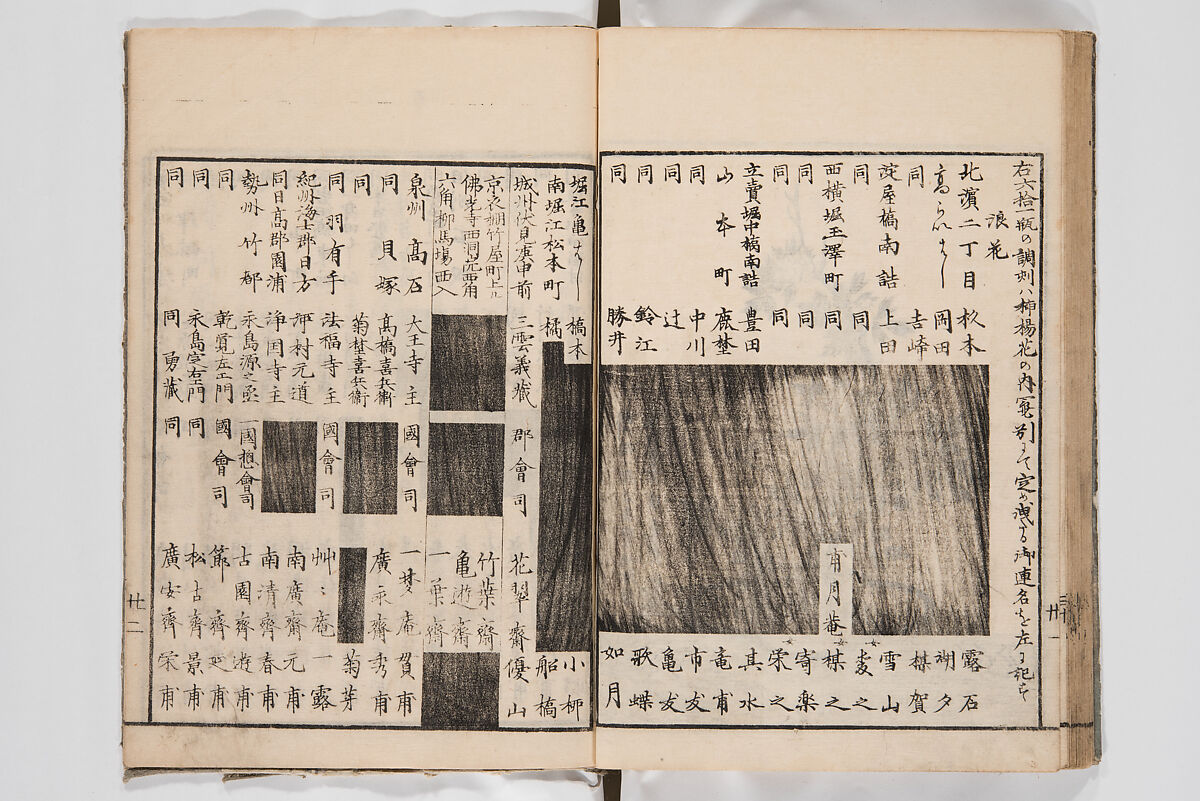 右六拾一瓶の調刻ハ挿楊花の内
浪花
北濱二丁目 杦本 露石
岡田 湖夕
同 吉崎 楳賀
淀屋橋南詰 上田 雪山
同 同
西横堀玉澤町 同 甫月菴 楳之
同 同 寄楽
同 同 栄之
立賣堀中橋南詰 豊田 其水
山本町 鹿埜 竜甫
同 中川 市友
同 辻 亀友
同 鈴江 歌蝶
同 勝井 如月
廿一
堀江亀 橋本 小柳
南堀江松本町 橘 船橋
城州伏見庚申前 三雲義藏 郡會司 花翠齋優山
京衣棚竹屋町上ル 竹葉齋
佛光寺西洞院西角 亀遊齋
六角柳馬場西入 一葉齋
泉州 高石 大王寺主 國會司 一夢庵賀甫
同 貝塚 高橋喜兵衛 廣永齋秀甫
同 菊埜喜兵衛 菊芽
同 羽有手 法福寺主 國會司 艸〻庵一露
紀州海士郡日方 沖村元道 南廣齋元甫
同日高郡園浦 浄国寺主 南清齋春甫
勢州 竹都 永島源之丞 一國想會司 古園齋遊甫
同 乾寛左エ門 國會司 節齋延甫
同 永島宮右エ門 同 松古齋景甫
同 同 勇藏 同 廣安齋栄甫
廿二